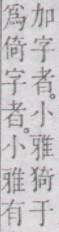 加字者。小雅猗于
爲倚字者。小雅有